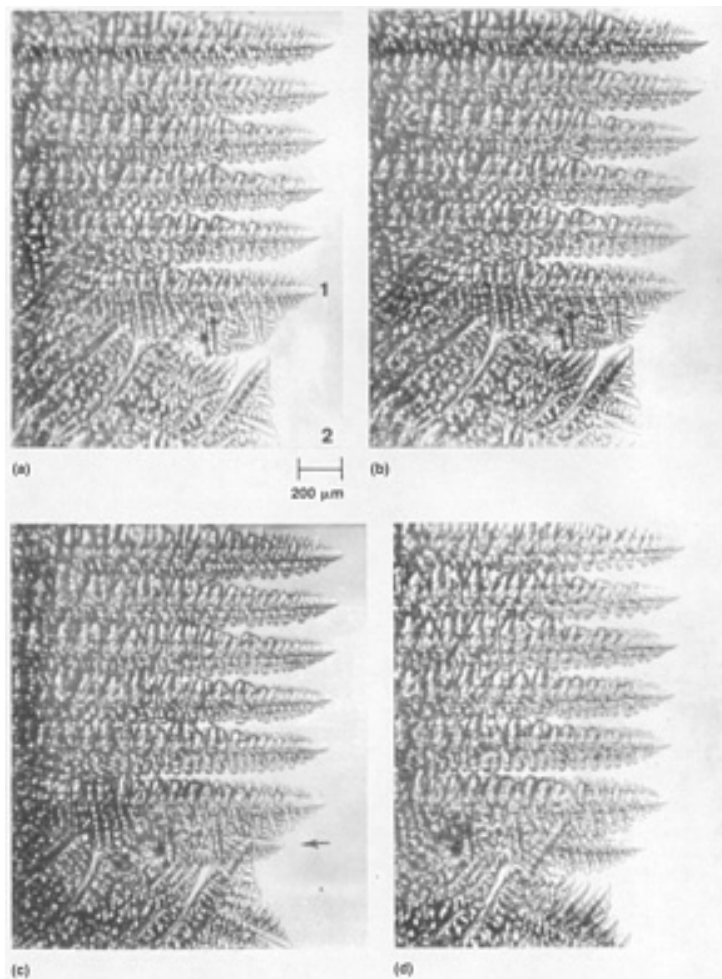 1
2
(a)
(b)
200 μm
(c)
(d)